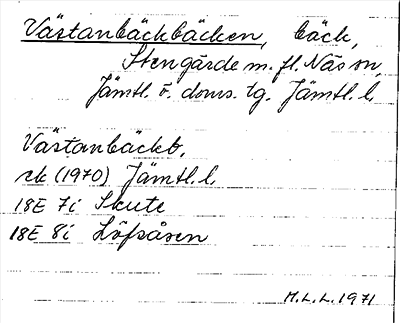 Västanbäckbäcken, bäck,
Stengärde m. fl. Näs sn,
Jämtl. ö. doms. tg. Jämtl. l.
Västanbäckb.
rk (1970) Jämtl. l.
18E 7i Skute
18E 8i Löfsåsen
M.L.L. 1971